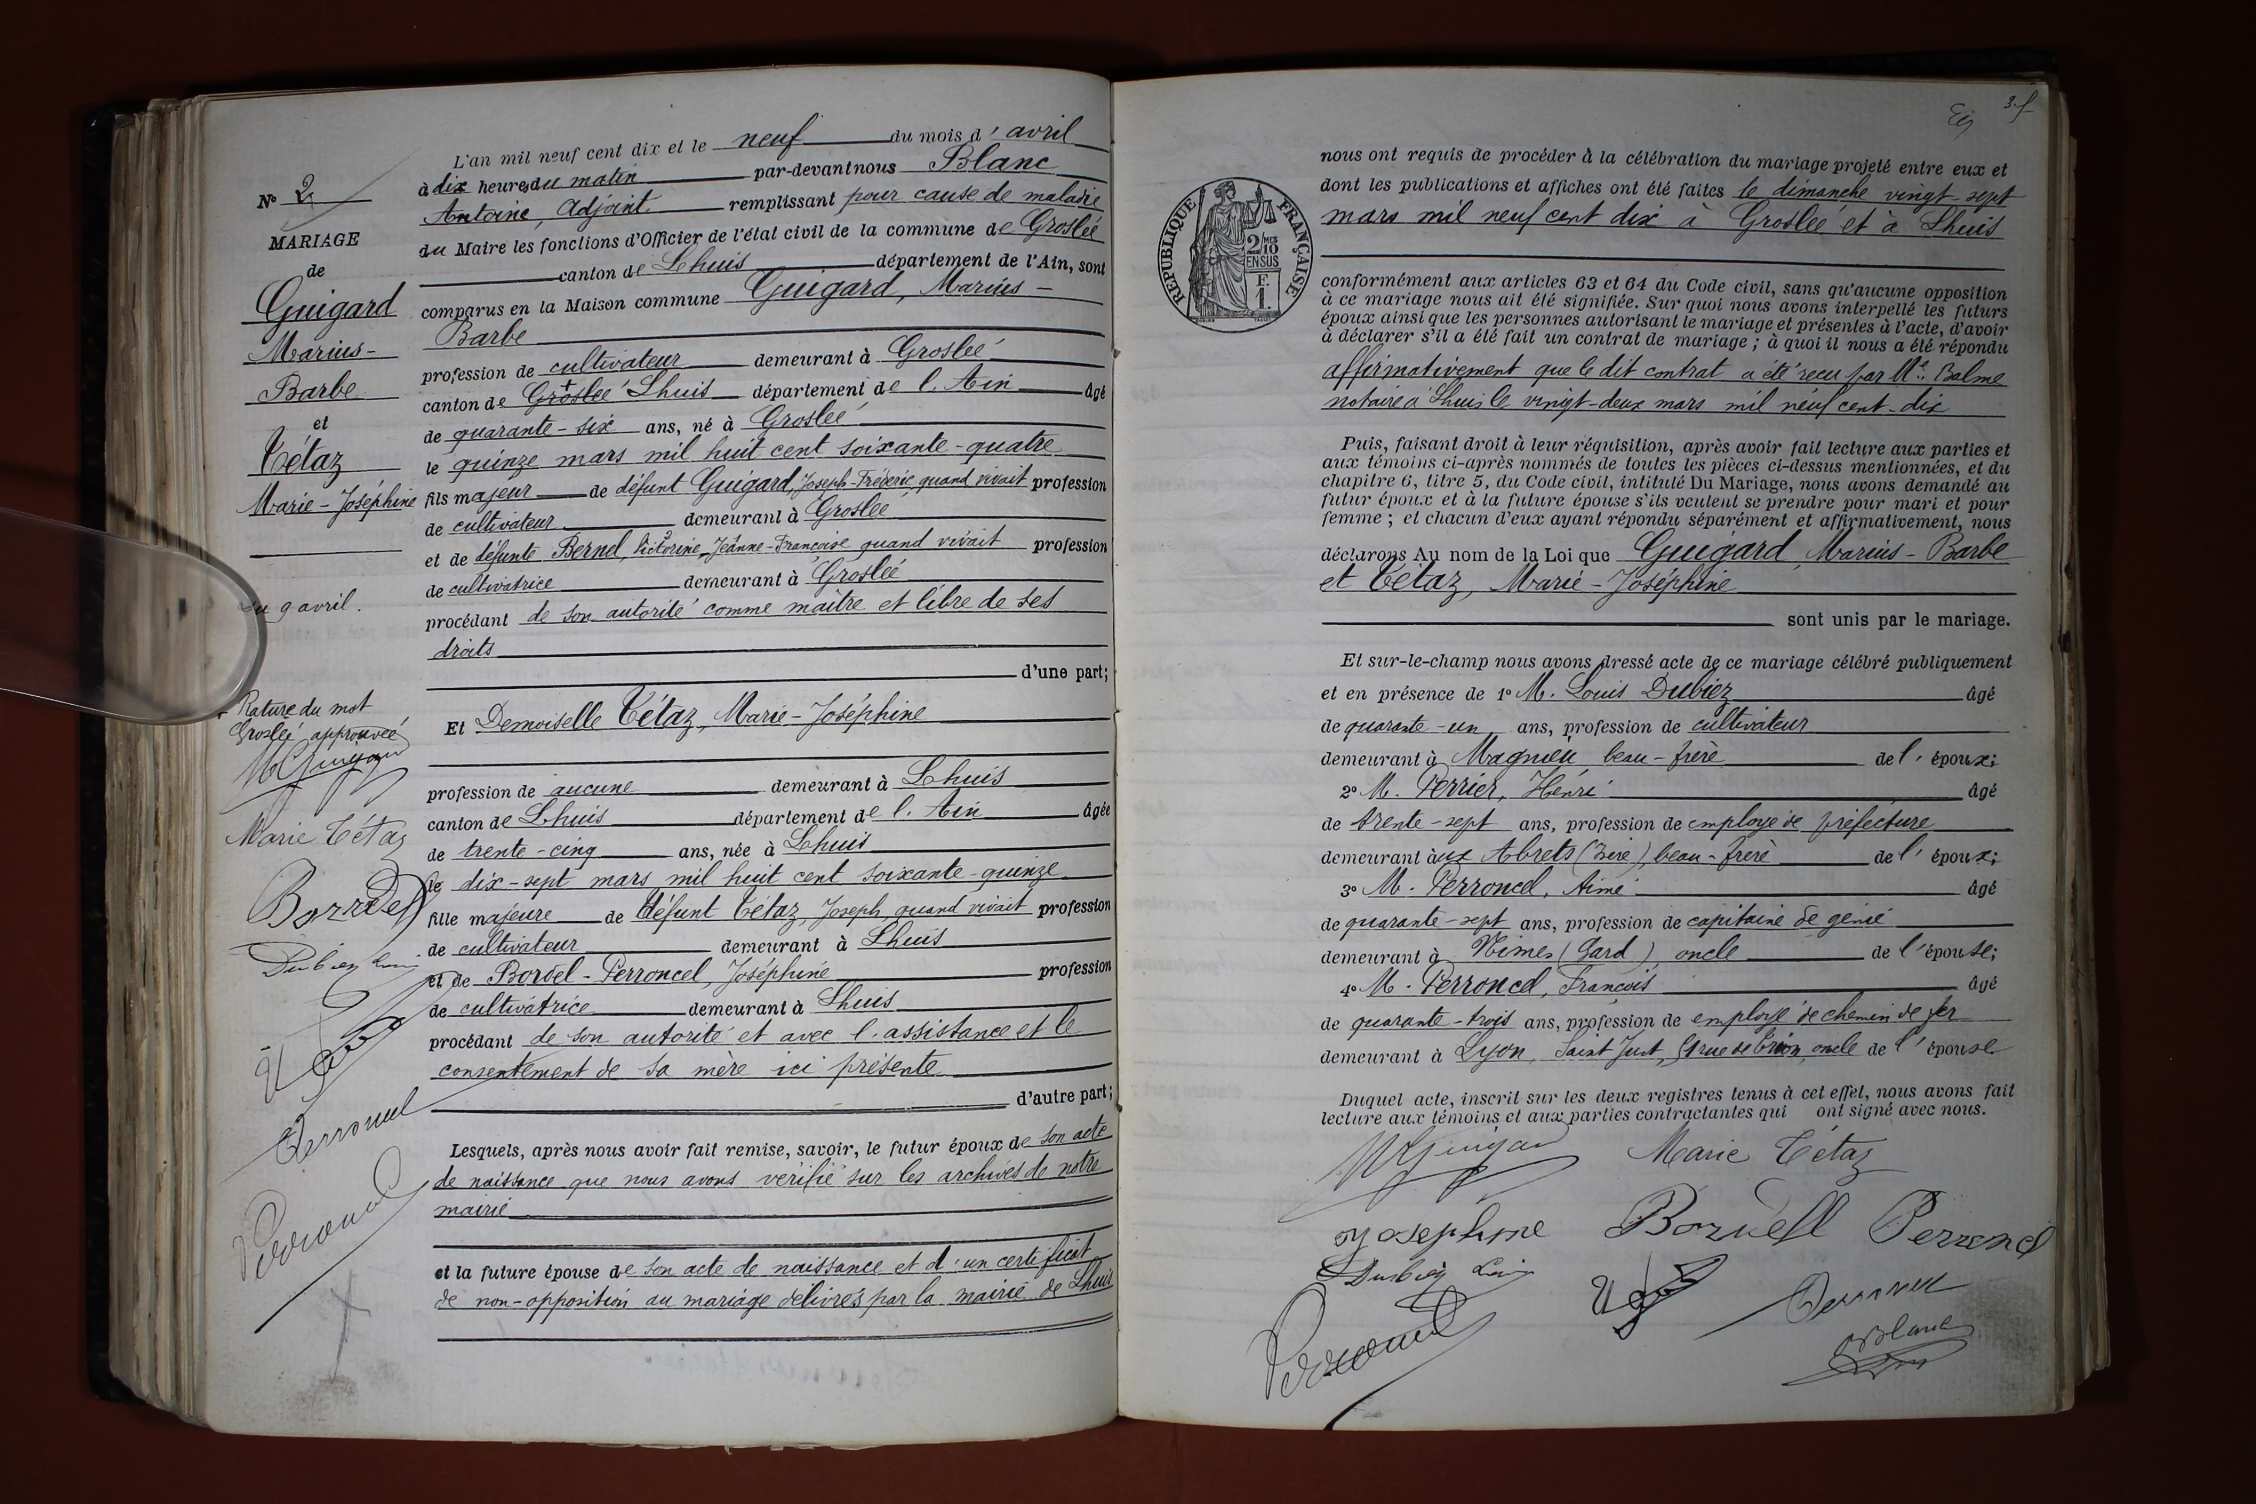 N° 2
MARIAGE
de
Guigard
Marius-
Barbe
et
Tétaz
Marie-Joséphine
du 9 avril.
+ Rature du mot
Groslée approuvée
Marie Tétaz
Dubiez Louis
L'an mil neuf cent dix et le neuf du mois d'avril
à dix heures du matin par-devant nous Blanc
Antoine, Adjoint remplissant pour cause de maladie
du Maire les fonctions d'Officier de l'état civil de la commune de Groslée
canton de Lhuis département de l'Ain, sont
comparus en la Maison commune Guigard, Marius-
Barbe
profession de cultivateur demeurant à Groslée
canton de Groslée + Lhuis département de l'Ain âgé
de quarante-six ans, né à Groslée
le quinze mars mil huit cent soixante-quatre
fils majeur de défunt Guigard, Joseph-Fréderic, quand vivait profession
de cultivateur demeurant à Groslée
et de défunte Bernel, Victorine, Jeanne-Françoise quand vivait profession
de cultivatrice demeurant à Groslée
procédant de son autorité comme maître et libre de ses
droits
d'une part;
Et Demoiselle Tétaz, Marie-Joséphine
profession de aucune demeurant à Lhuis
canton de Lhuis département de l'Ain âgée
de trente-cinq ans, née à Lhuis
le dix-sept mars mil huit cent soixante-quinze
fille majeure de défunt Tétaz, Joseph, quand vivait profession
de cultivateur demeurant à Lhuis
et de Bordel-Perroncel, Joséphine profession
de cultivatrice demeurant à Lhuis
procédant de son autorité et avec l'assistance et le
consentement de sa mère ici présente
d'autre part;
Lesquels, après nous avoir fait remise, savoir, le futur époux de son acte
de naissance que nous avons vérifié sur les archives de notre
mairie
et la future épouse de son acte de naissance et d'un certificat
de non-opposition au mariage délivrés par la mairie de Lhuis
3. f
RÉPUBLIQUE FRANÇAISE
2/10 MES
EN SUS
F.
1.
nous ont requis de procéder à la célébration du mariage projeté entre eux et
dont les publications et affiches ont été faites le dimanche vingt-sept
mars mil neuf cent dix à Groslée et à Lhuis
conformément aux articles 63 et 64 du Code civil, sans qu'aucune opposition
à ce mariage nous ait été signifiée. Sur quoi nous avons interpellé les futurs
époux ainsi que les personnes autorisant le mariage et présentes à l'acte, d'avoir
à déclarer s'il a été fait un contrat de mariage; à quoi il nous a été répondu
affirmativement que le dit contrat a été reçu par Me. Balme
notaire à Lhuis le vingt-deux mars mil neuf cent dix
Puis, faisant droit à leur réquisition, après avoir fait lecture aux parties et
aux témoins ci-après nommés de toutes les pièces ci-dessus mentionnées, et du
chapitre 6, titre 5, du Code civil, intitulé Du Mariage, nous avons demandé au
futur époux et à la future épouse s'ils veulent se prendre pour mari et pour
femme; et chacun d'eux ayant répondu séparément et affirmativement, nous
déclarons Au nom de la Loi que Guigard, Marius-Barbe
et Tétaz, Marie-Joséphine
sont unis par le mariage.
Et sur-le-champ nous avons dressé acte de ce mariage célébré publiquement
et en présence de 1° M. Louis Dubiez âgé
de quarante-un ans, profession de cultivateur
demeurant à Magnieu beau-frère de l'époux;
2° M. Perrier, Henri âgé
de trente-sept ans, profession de employé de préfecture
demeurant aux Abrets (Isère), beau-frère de l'époux;
3° M. Perroncel, Aimé âgé
de quarante-sept ans, profession de capitaine de génie
demeurant à Nîmes (Gard), oncle de l'épouse;
4° M. Perroncel, François âgé
de quarante-trois ans, profession de employé de chemin de fer
demeurant à Lyon, Saint Just, 51 rue de Trion, oncle de l'épouse
Duquel acte, inscrit sur les deux registres tenus à cet effet, nous avons fait
lecture aux témoins et aux parties contractantes qui ont signé avec nous.
Marie Tétaz
Dubiez Louis
Blanc